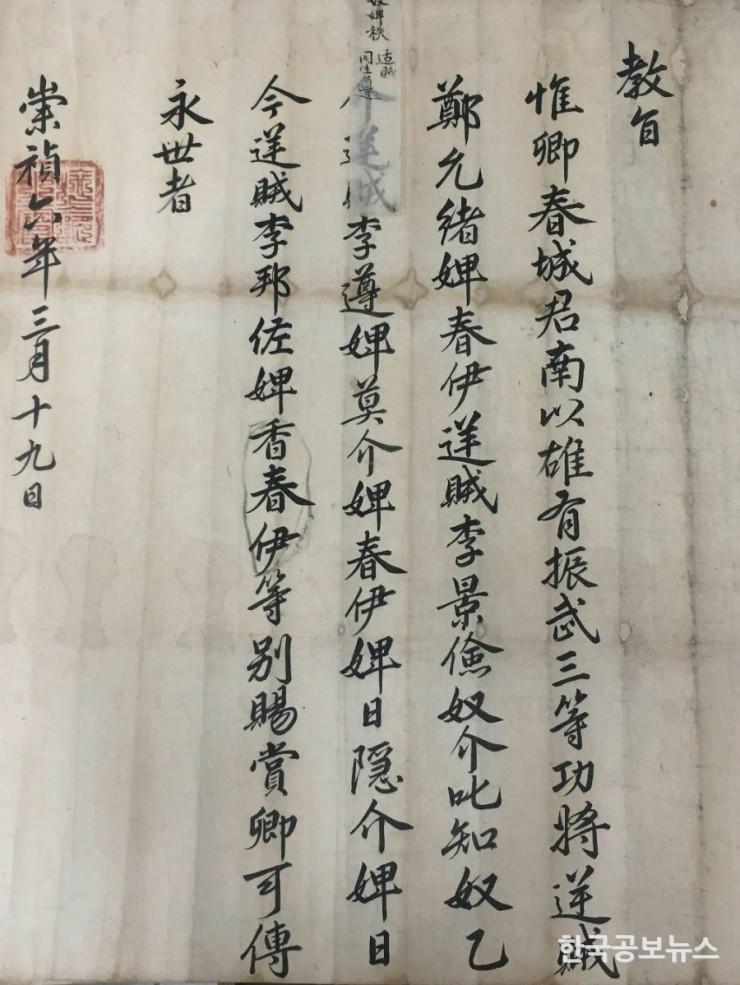 教旨
惟卿春城君南以雄有振武三等功將逆賊
鄭允緖婢春伊逆賊李景儉奴介叱知奴乙
逆賊李遵婢莫介婢春伊婢日隱介婢日
今逆賊李邦佐婢香春伊等別賜賞卿可傳
永世者
崇禎六年三月十九日
한국공보뉴스